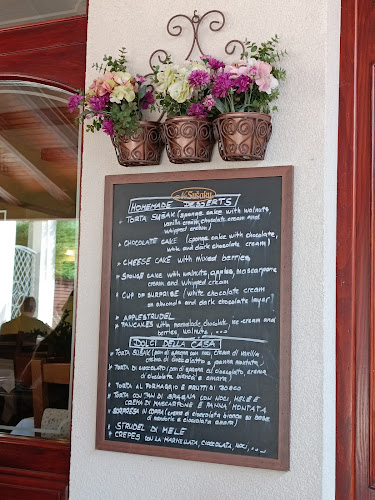 Sušak
HOMEMADE DESSERTS
• TORTA SUŠAK (sponge cake with walnuts,
vanilla cream, chocolate cream and
whipped cream)
• CHOCOLATE CAKE (sponge cake with chocolate,
white and dark chocolate cream)
• CHEESE CAKE with mixed berries
• SPONGE CAKE with walnuts, apples, mascarpone
cream and whipped cream
• CUP OF SURPRISE (white chocolate cream
on almonds and dark chocolate layer)
• APPLESTRUDEL
• PANCAKES with marmelade, chocolate, ice-cream and
berries, walnuts, ...
DOLCI DELLA CASA
• TORTA SUŠAK (pan di spagna con noci, crema di vaniglia
crema di cioccolatto e panna montata)
• TORTA DI CIOCCOLATO (pan di spagna al cioccolato, crema
di cioccolato bianca e amara)
• TORTA AL FORMAGGIO E FRUTTI DI BOSCO
• TORTA CON PAN DI SPAGNA CON NOCI MELE E
CREMA DI MASCARPONE E PANNA MONTATA
• SORPRESA IN COPPA (crema di cioccolato bianco su base
di mandorle e cioccolato amaro)
• STRUDEL DI MELE
• CREPES CON LA MARMELLATA, CIOCCOLATA, NOCI, ...